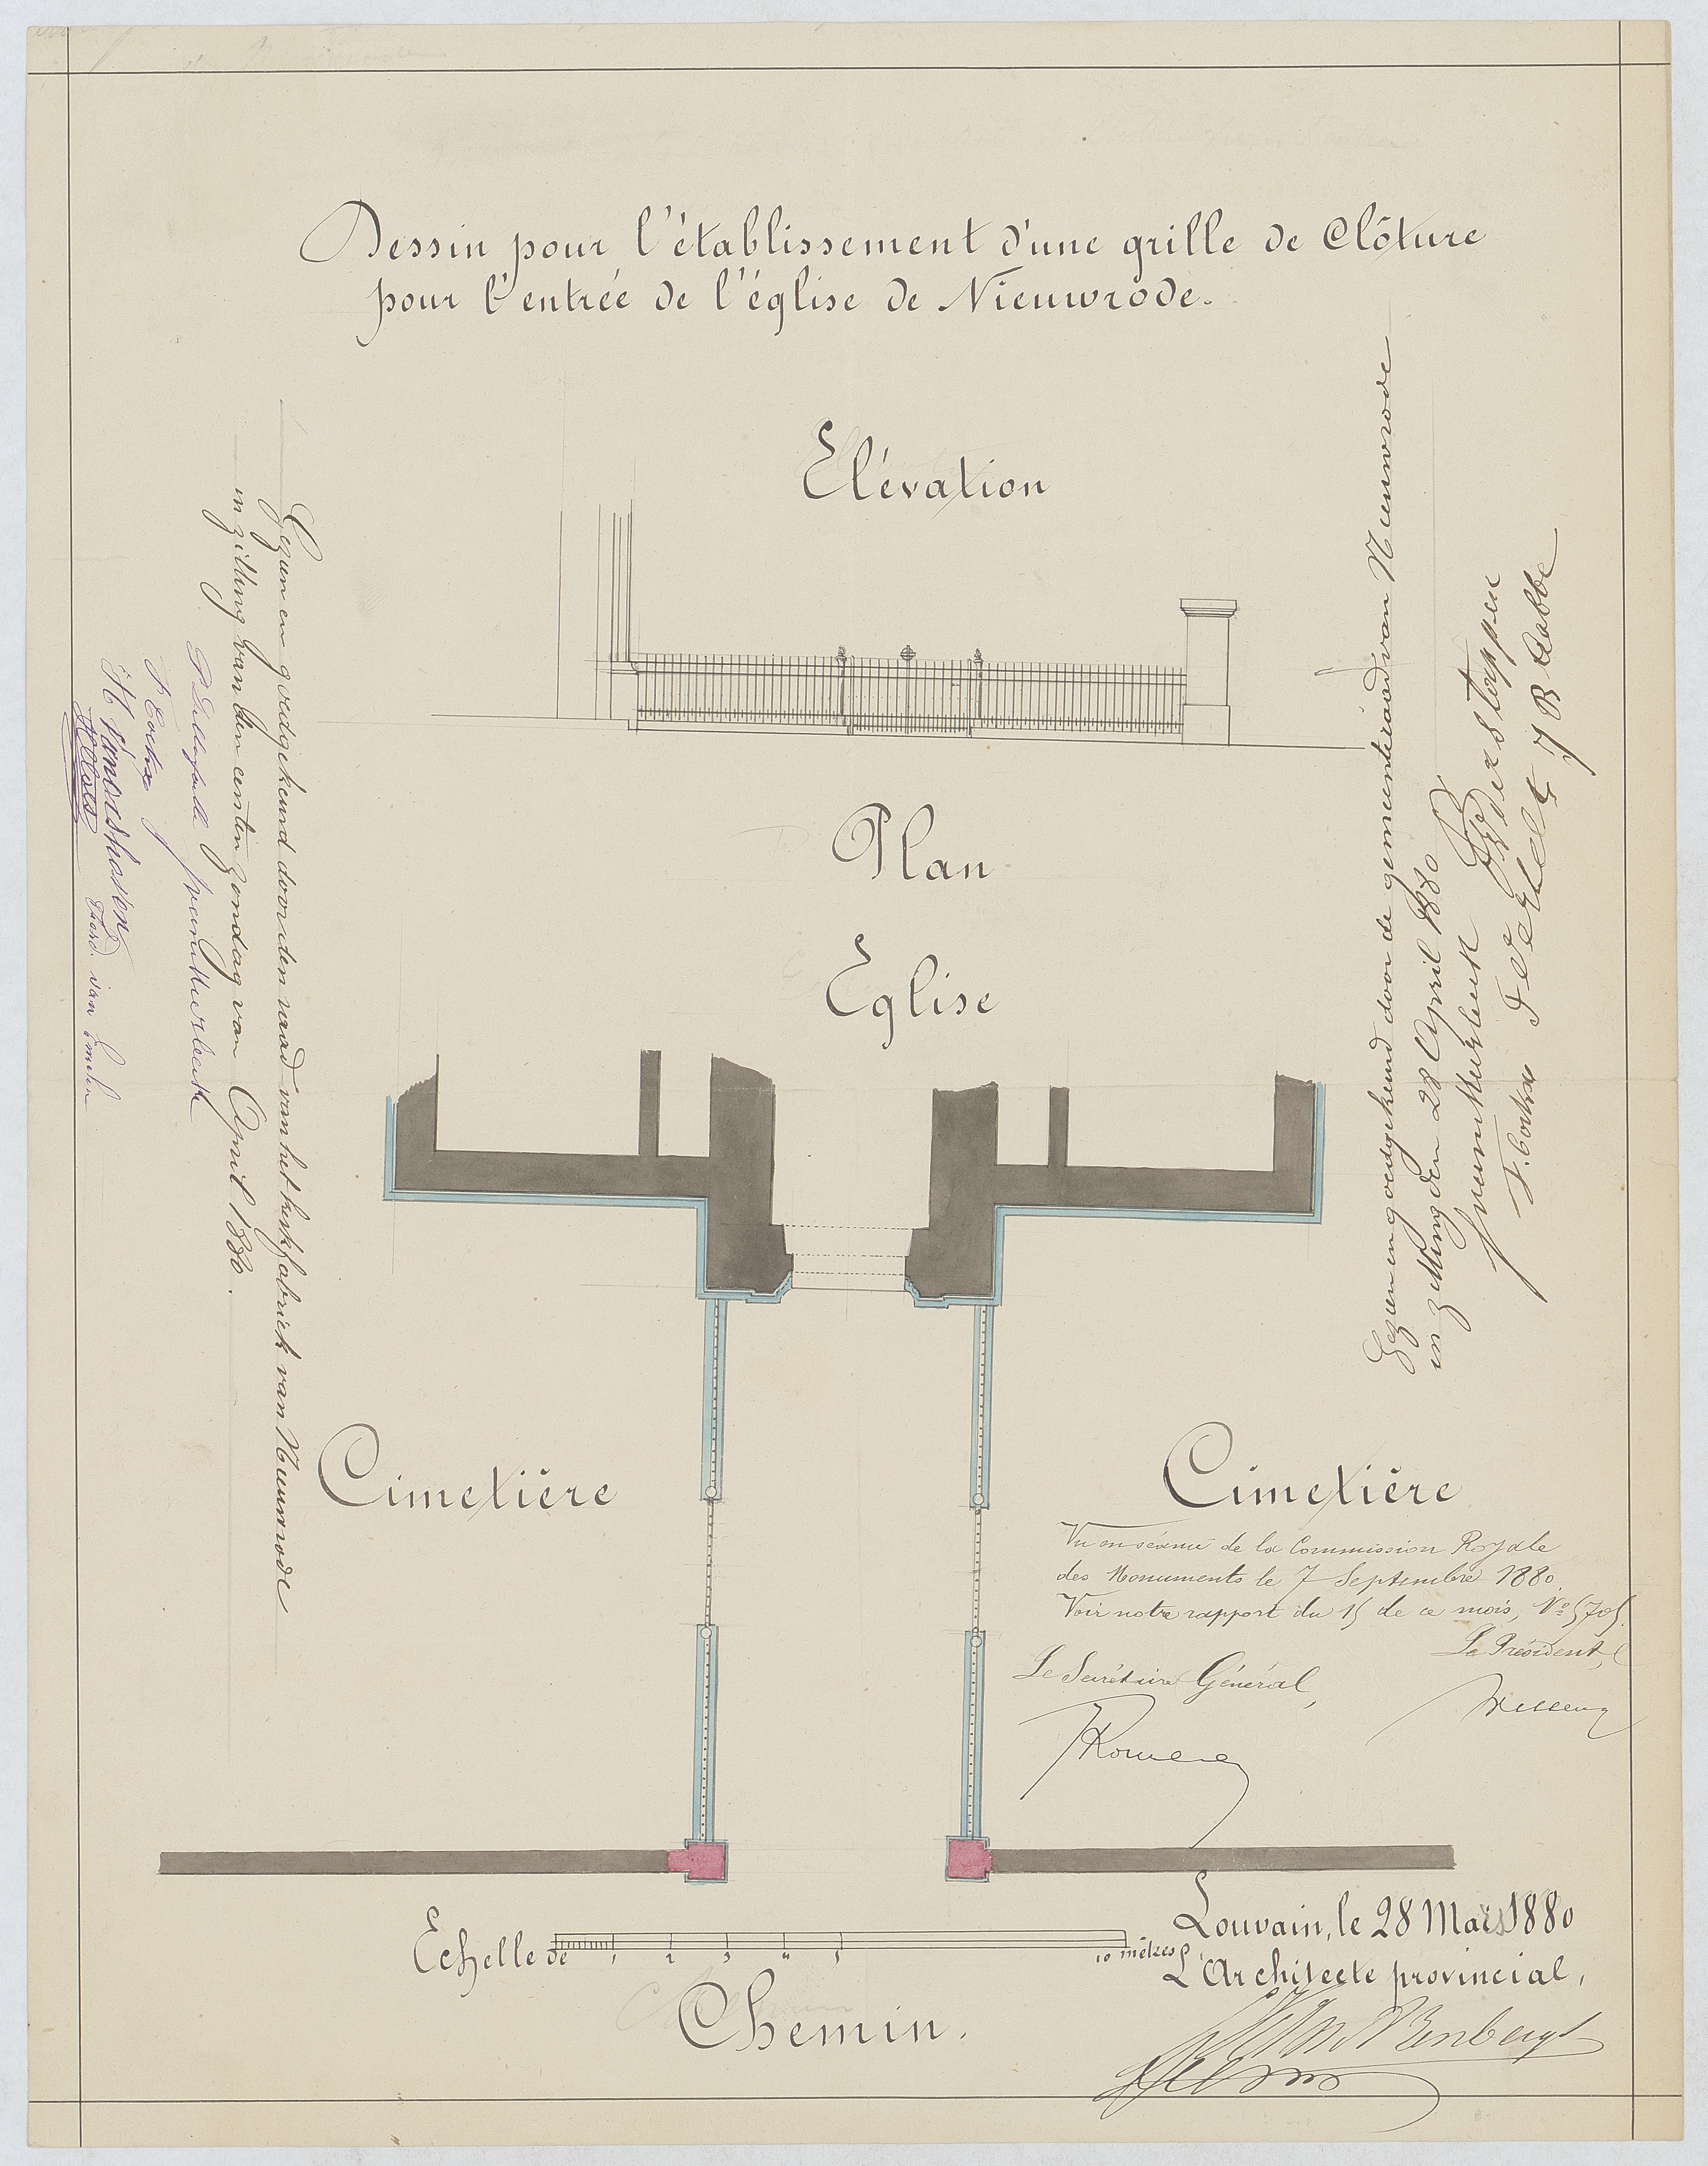 Dessin pour l'établissement d'une grille de Clôture
pour l'entrée de l'église de Nieuwrode.
Elévation
Plan
Eglise
Cimetière
Cimetière
Gezien en goedgekeurd door den raad van het kerkfabriek van Nieuwrode
in zitting van den eersten zondag van April 1880.
Ferd. van
Gezien en goedgekeurd door de gemeenteraad van Nieuwrode
in zitting den 28 April 1880
Verstappen
J B
Vu en séance de la Commission Royale
des Monuments le 7 Septembre 1880.
Voir notre rapport du 15 de ce mois, N° 5705.
Le Président,
Le Secrétaire Général,
Rousseau
Wellens
Echelle de 1 2 3 4 5 10 mètres
Louvain, le 28 Mars 1880
L'Architecte provincial,
Chemin.